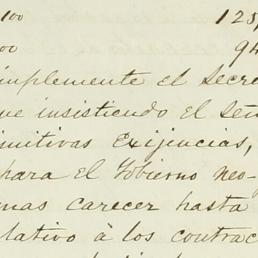 100 125,
00 94
implemente el Secre
ue insistiendo el Señ
imitivas exijencias,
para el Gobierno neo-
mas carecer hasta
lativo à los contrac